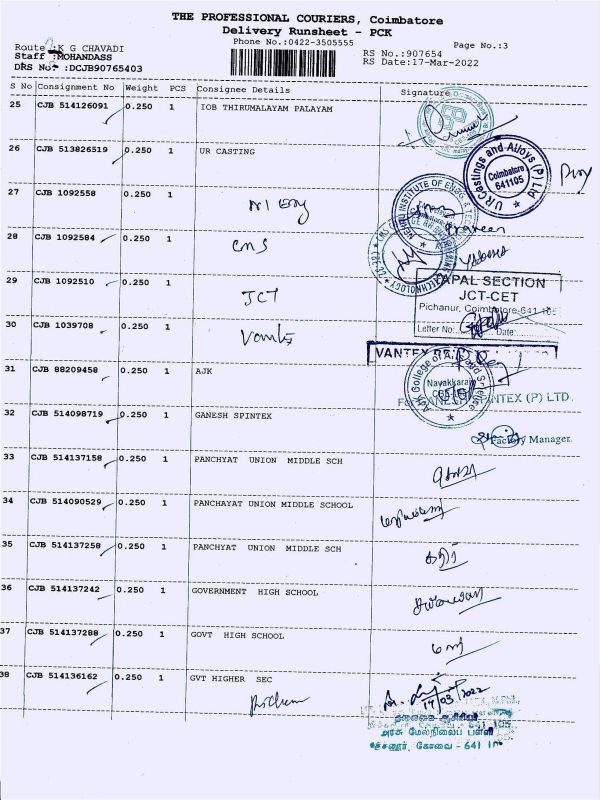 THE PROFESSIONAL COURIERS, Coimbatore
Delivery Runsheet - PCK
Phone No.:0422-3505555
Page No.:3
Route :K G CHAVADI
Staff :MOHANDASS
DRS No :DCJB90765403
RS No.:907654
RS Date:17-Mar-2022
S No Consignment No Weight PCS Consignee Details Signature
25 CJB 514126091 0.250 1 IOB THIRUMALAYAM PALAYAM
26 CJB 513826519 0.250 1 UR CASTING
U.R.Castings and Alloys (P) Ltd
Coimbatore
641105
27 CJB 1092558 0.250 1
NEHRU INSTITUTE OF ENGG & TECH
28 CJB 1092584 0.250 1 CMS
29 CJB 1092510 0.250 1 JCT
TAPAL SECTION
JCT-CET
Pichanur, Coimbatore-641 105
Letter No: Date:
30 CJB 1039708 0.250 1
VANTEX
31 CJB 88209458 0.250 1 AJK
AJK College of
Navakkarai
32 CJB 514098719 0.250 1 GANESH SPINTEX
For GANESH SPINTEX (P) LTD.
Factory Manager.
33 CJB 514137158 0.250 1 PANCHYAT UNION MIDDLE SCH
34 CJB 514090529 0.250 1 PANCHAYAT UNION MIDDLE SCHOOL
35 CJB 514137258 0.250 1 PANCHYAT UNION MIDDLE SCH
36 CJB 514137242 0.250 1 GOVERNMENT HIGH SCHOOL
37 CJB 514137288 0.250 1 GOVT HIGH SCHOOL
38 CJB 514136162 0.250 1 GVT HIGHER SEC
17/03/2022
தலைமை ஆசிரியர்
அரசு மேல்நிலைப் பள்ளி
கோவை - 641 105